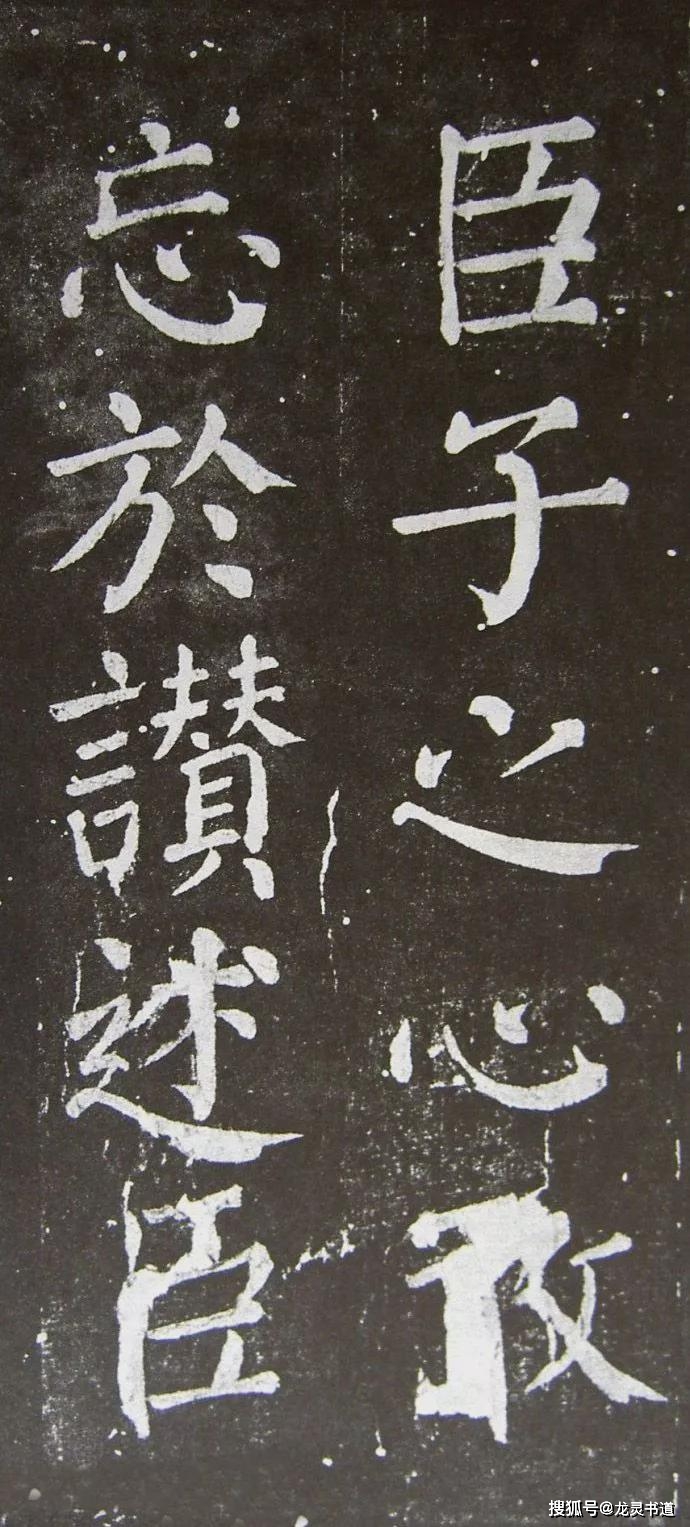 臣子之心敢
忘於讃述臣
搜狐号@龙灵书道